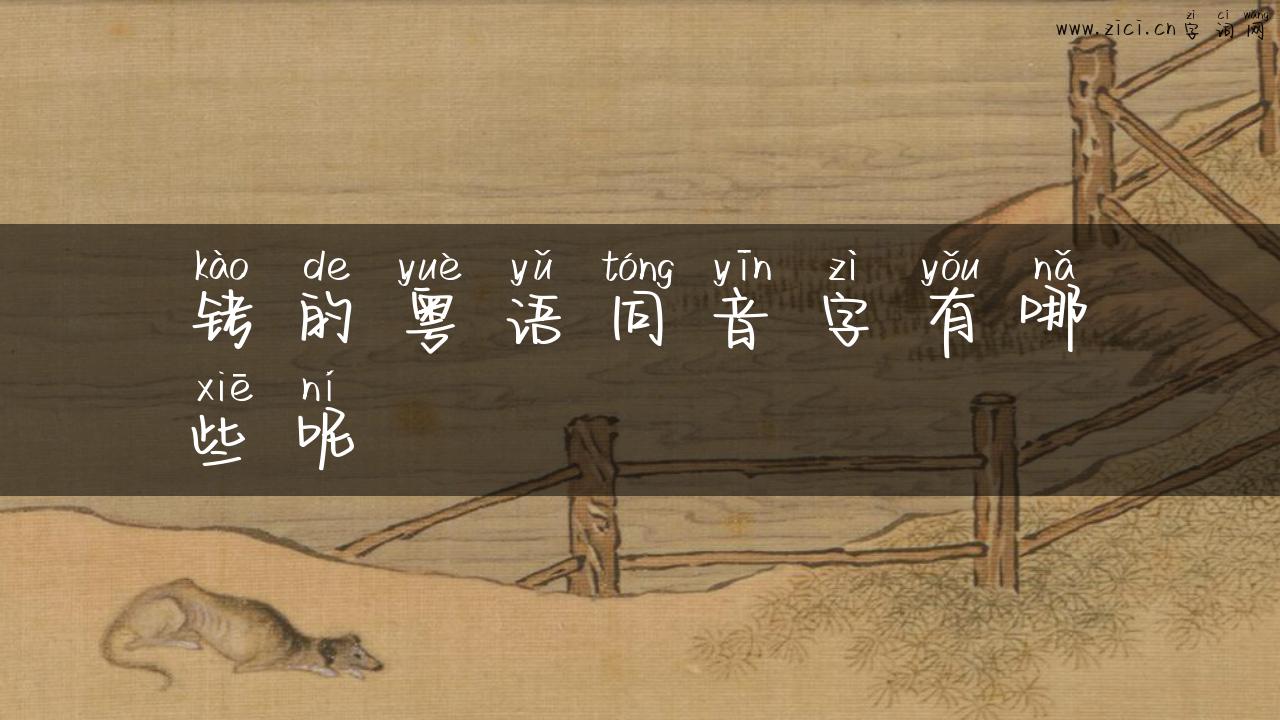 zì cí wǎng
www.zici.cn字词网
kào de yuè yǔ tóng yīn zì yǒu nǎ
铐的粤语同音字有哪
xiē ní
些呢